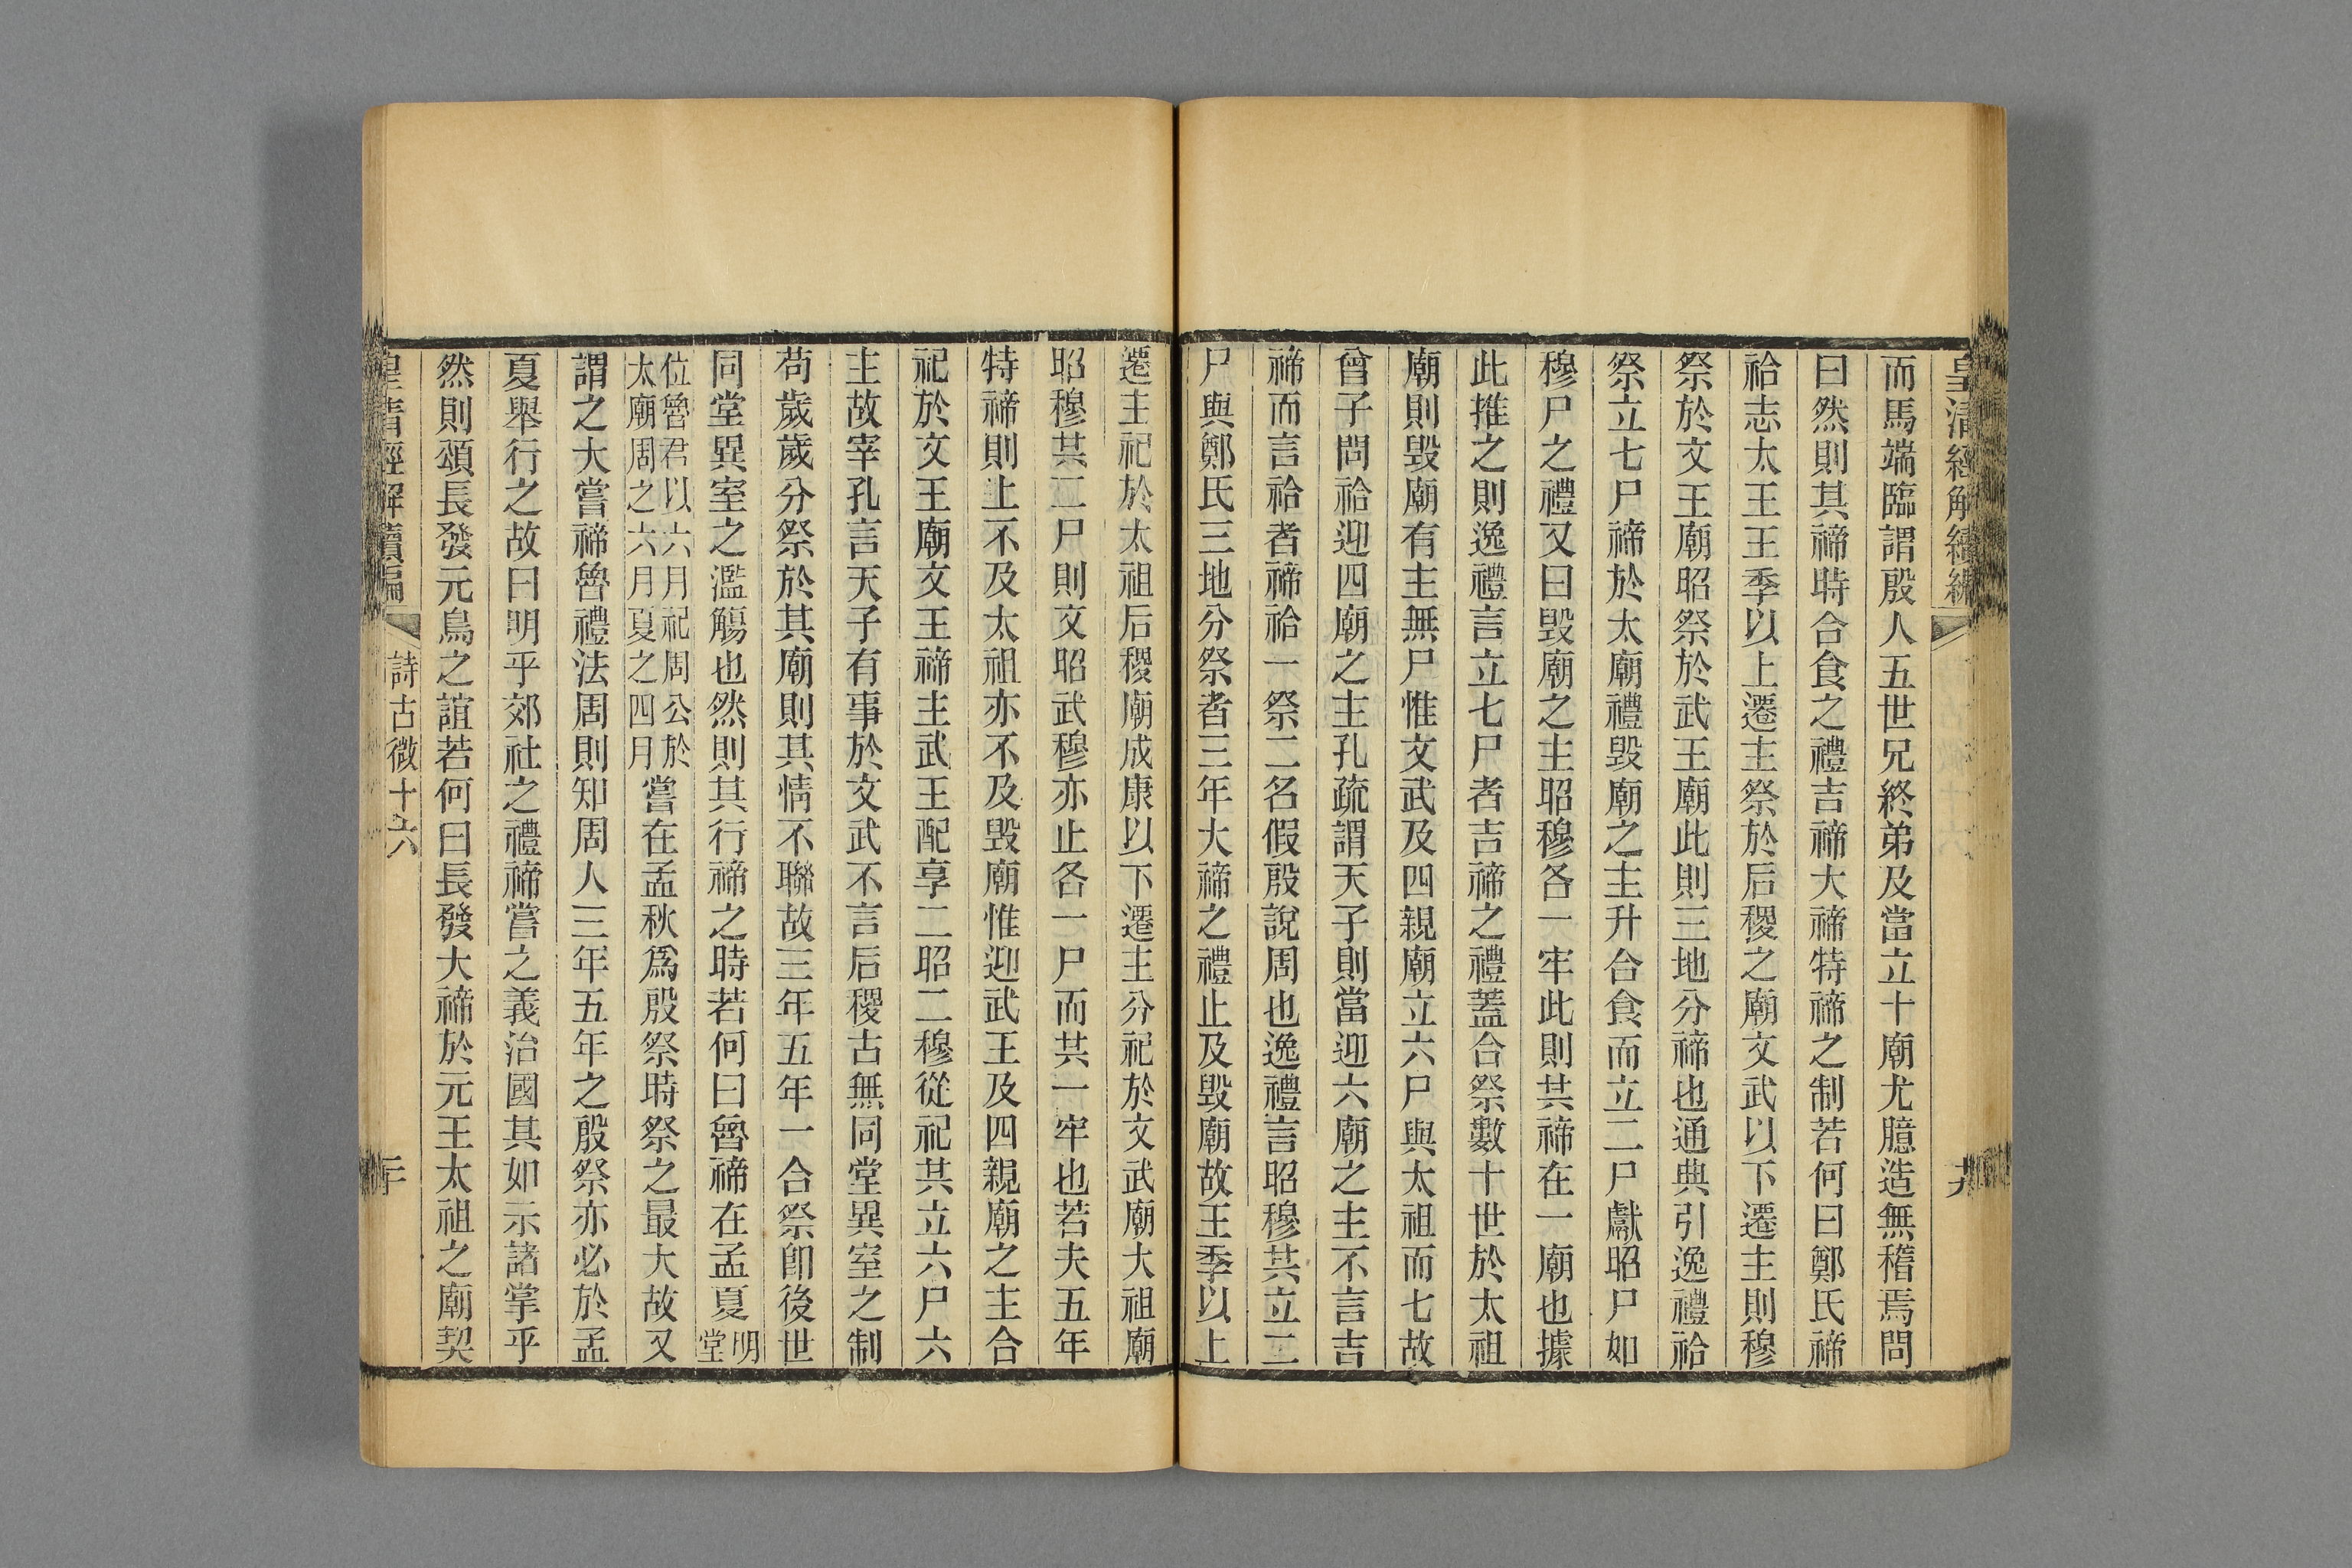 皇清經解續編
九
而馬端臨謂殷人五世兄終弟及當立十廟尤臆造無稽焉問
曰然則其禘時合食之禮吉禘大禘特禘之制若何曰鄭氏禘
祫志太王王季以上遷主祭於后稷之廟文武以下遷主則穆
祭於文王廟昭祭於武王廟此則三地分禘也通典引逸禮祫
祭立七尸禘於太廟禮毀廟之主升合食而立二尸獻昭尸如
穆尸之禮又曰毀廟之主昭穆各一牢此則其禘在一廟也據
此推之則逸禮言立七尸者吉禘之禮蓋合祭數十世於太祖
廟則毀廟有主無尸惟文武及四親廟立六尸與太祖而七故
曾子問祫迎四廟之主孔疏謂天子則當迎六廟之主不言吉
禘而言祫者禘祫一祭二名假殷說周也逸禮言昭穆共立二
尸與鄭氏三地分祭者三年大禘之禮止及毀廟故王季以上
遷主祀於太祖后稷廟成康以下遷主分祀於文武廟大祖廟
昭穆共二尸則文昭武穆亦止各一尸而共一牢也若夫五年
特禘則上不及太祖亦不及毀廟惟迎武王及四親廟之主合
祀於文王廟文王禘主武王配享二昭二穆從祀其立六尸六
主故宰孔言天子有事於文武不言后稷古無同堂異室之制
苟歲歲分祭於其廟則其情不聯故三年五年一合祭卽後世
同堂異室之濫觴也然則其行禘之時若何曰魯禘在孟夏明堂
位魯君以六月祀周公於太廟周之六月夏之四月嘗在孟秋爲殷祭時祭之最大故又
謂之大嘗禘魯禮法周則知周人三年五年之殷祭亦必於孟
夏舉行之故曰明乎郊社之禮禘嘗之義治國其如示諸掌乎
然則頌長發元鳥之誼若何曰長發大禘於元王太祖之廟契
皇清經解續編
詩古微十六